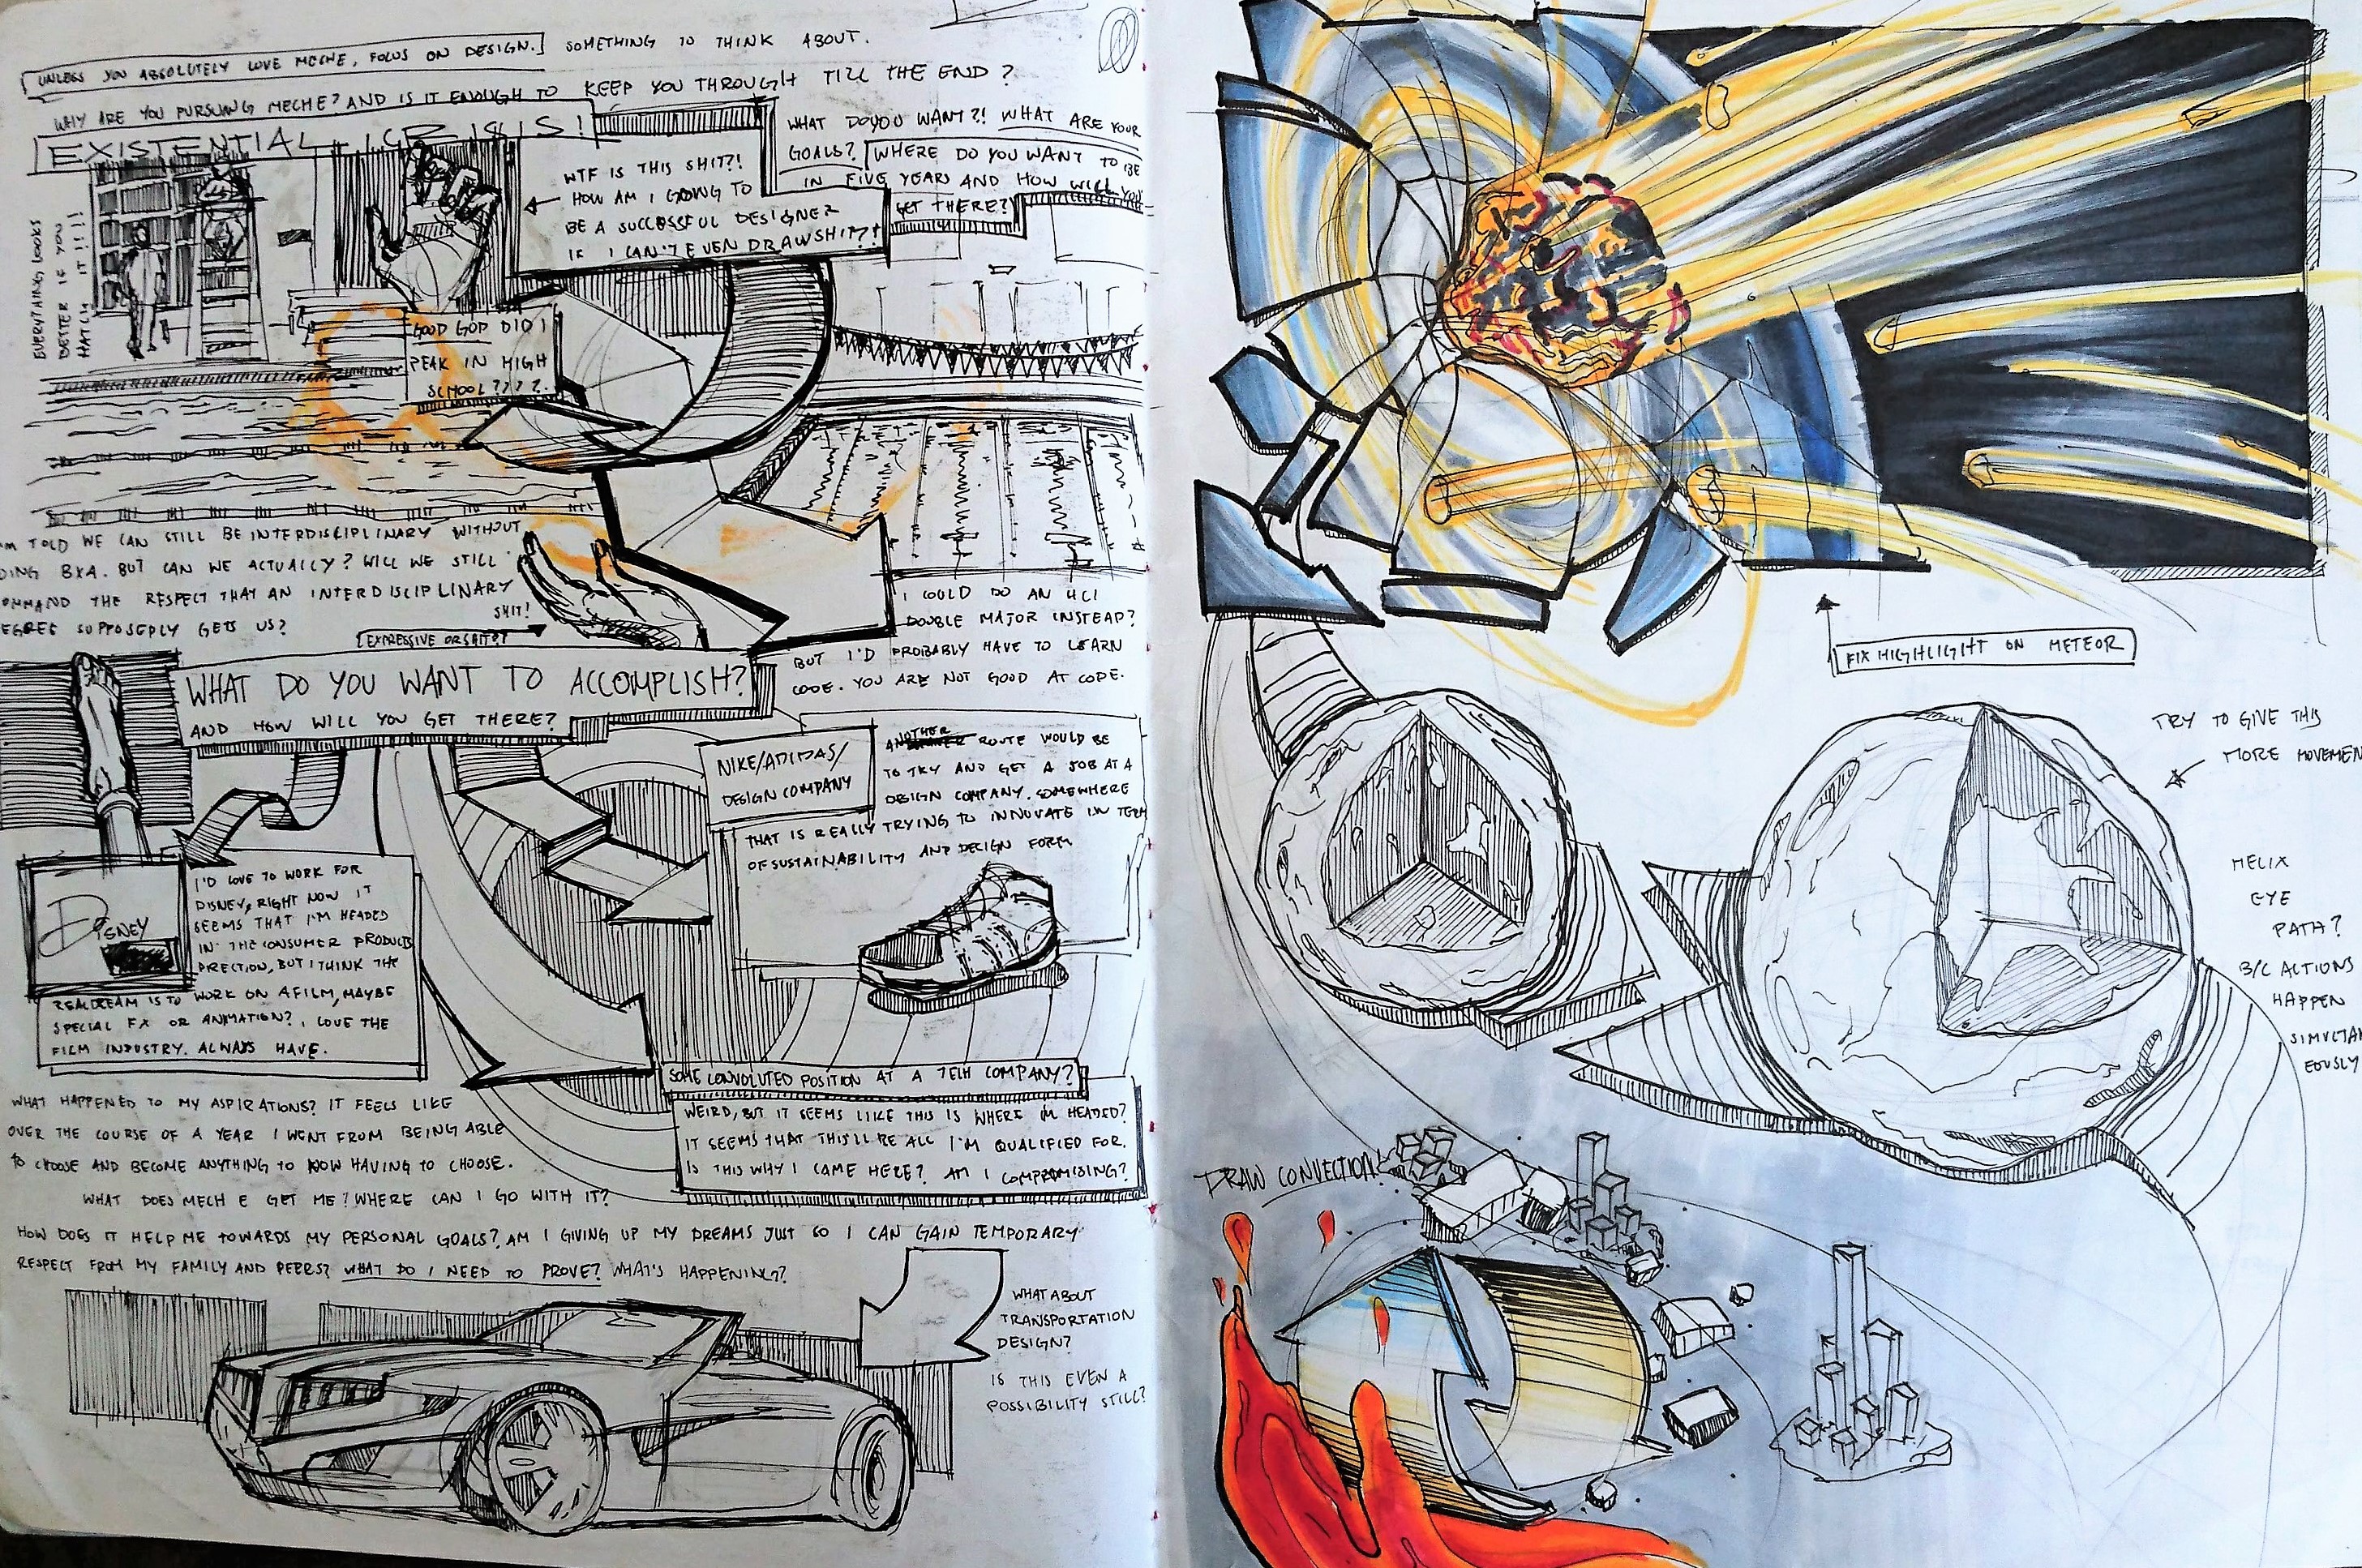 UNLESS YOU ABSOLUTELY LOVE MECHE, FOCUS ON DESIGN. SOMETHING TO THINK ABOUT.
WHY ARE YOU PURSUING MECHE? AND IS IT ENOUGH TO KEEP YOU THROUGH TILL THE END?
EXISTENTIAL CRISIS!
WHAT DO YOU WANT?! WHAT ARE YOUR
GOALS? WHERE DO YOU WANT TO BE
IN FIVE YEARS AND HOW WILL YOU
GET THERE?
WTF IS THIS SHIT?!
HOW AM I GOING TO
BE A SUCCESSFUL DESIGNER
IF I CAN'T EVEN DRAW SHIT?!
EVERYTHING LOOKS
BETTER IF YOU
HATCH IT!!!!
GOOD GOD DID I
PEAK IN HIGH
SCHOOL????
I'M TOLD WE CAN STILL BE INTERDISCIPLINARY WITHOUT
DING BXA. BUT CAN WE ACTUALLY? WILL WE STILL
OMMAND THE RESPECT THAT AN INTERDISCIPLINARY
EGREE SUPPOSEDLY GETS US?
SHIT!
EXPRESSIVE OR SHIT?!
I COULD DO AN HCI
DOUBLE MAJOR INSTEAD?
BUT I'D PROBABLY HAVE TO LEARN
CODE. YOU ARE NOT GOOD AT CODE.
WHAT DO YOU WANT TO ACCOMPLISH?
AND HOW WILL YOU GET THERE?
NIKE/ADIDAS/
DESIGN COMPANY
ANOTHER ROUTE WOULD BE
TO TRY AND GET A JOB AT A
DESIGN COMPANY. SOMEWHERE
THAT IS REALLY TRYING TO INNOVATE IN TERM
OF SUSTAINABILITY AND DESIGN FORM
DISNEY
I'D LOVE TO WORK FOR
DISNEY, RIGHT NOW IT
SEEMS THAT I'M HEADED
IN THE CONSUMER PRODUCTS
DIRECTION, BUT I THINK THE
REAL DREAM IS TO WORK ON A FILM, MAYBE
SPECIAL FX OR ANIMATION? I LOVE THE
FILM INDUSTRY. ALWAYS HAVE.
SOME CONVOLUTED POSITION AT A TECH COMPANY?
WEIRD, BUT IT SEEMS LIKE THIS IS WHERE IM HEADED?
IT SEEMS THAT THIS'LL BE ALL I'M QUALIFIED FOR.
IS THIS WHY I CAME HERE? AM I COMPROMISING?
WHAT HAPPENED TO MY ASPIRATIONS? IT FEELS LIKE
OVER THE COURSE OF A YEAR I WENT FROM BEING ABLE
TO CHOOSE AND BECOME ANYTHING TO NOW HAVING TO CHOOSE.
WHAT DOES MECH E GET ME? WHERE CAN I GO WITH IT?
HOW DOES IT HELP ME TOWARDS MY PERSONAL GOALS? AM I GIVING UP MY DREAMS JUST SO I CAN GAIN TEMPORARY
RESPECT FROM MY FAMILY AND PEERS? WHAT DO I NEED TO PROVE? WHAT'S HAPPENING?
WHAT ABOUT
TRANSPORTATION
DESIGN?
IS THIS EVEN A
POSSIBILITY STILL?
FIX HIGHLIGHT ON METEOR
TRY TO GIVE THIS
MORE MOVEMEN
HELIX
EYE
PATH?
B/C ACTIONS
HAPPEN
SIMULTAN
EOUSLY
DRAW CONVECTION!